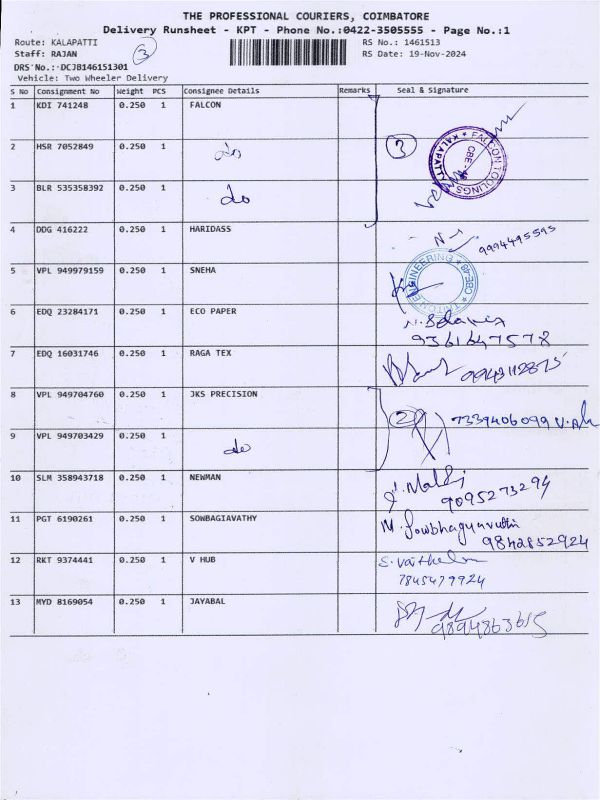 THE PROFESSIONAL COURIERS, COIMBATORE
Delivery Runsheet - KPT - Phone No.:0422-3505555 - Page No.:1
Route: KALAPATTI
3
RS No.: 1461513
Staff: RAJAN
RS Date: 19-Nov-2024
DRS No.:-DCJB146151301
Vehicle: Two Wheeler Delivery
S No Consignment No Weight PCS Consignee Details Remarks Seal & Signature
1 KDI 741248 0.250 1 FALCON
2 HSR 7052849 0.250 1 do
3
FALCON TOOLINGS KALAPATTI CBE-48
3 BLR 535358392 0.250 1 do
4 DDG 416222 0.250 1 HARIDASS 9994495595
5 VPL 949979159 0.250 1 SNEHA
ENGINEERING CBE-48
6 EDQ 23284171 0.250 1 ECO PAPER
9361647578
7 EDQ 16031746 0.250 1 RAGA TEX 9943112875
8 VPL 949704760 0.250 1 JKS PRECISION
2 7339406099
9 VPL 949703429 0.250 1 do
10 SLM 358943718 0.250 1 NEWMAN
9095273294
11 PGT 6190261 0.250 1 SOWBAGIAVATHY
9842852924
12 RKT 9374441 0.250 1 V HUB
7845479924
13 MYD 8169054 0.250 1 JAYABAL
9894863615